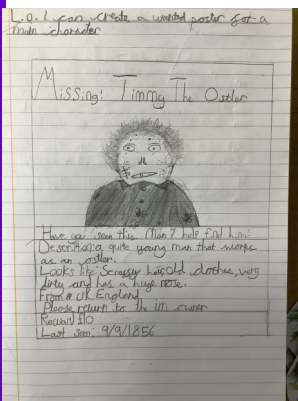 L.O. I can create a wanted poster for a
main character
Missing: Timmy The Ostler
Have you seen this Man? help find him!
Description: a quite young man that works
as an ostler.
Looks like: Scraggy hair, Old clothes, very
dirty and has a huge nose.
From: UK England
Please return to the inn owner
Reward £10
Last seen: 9/9/1856